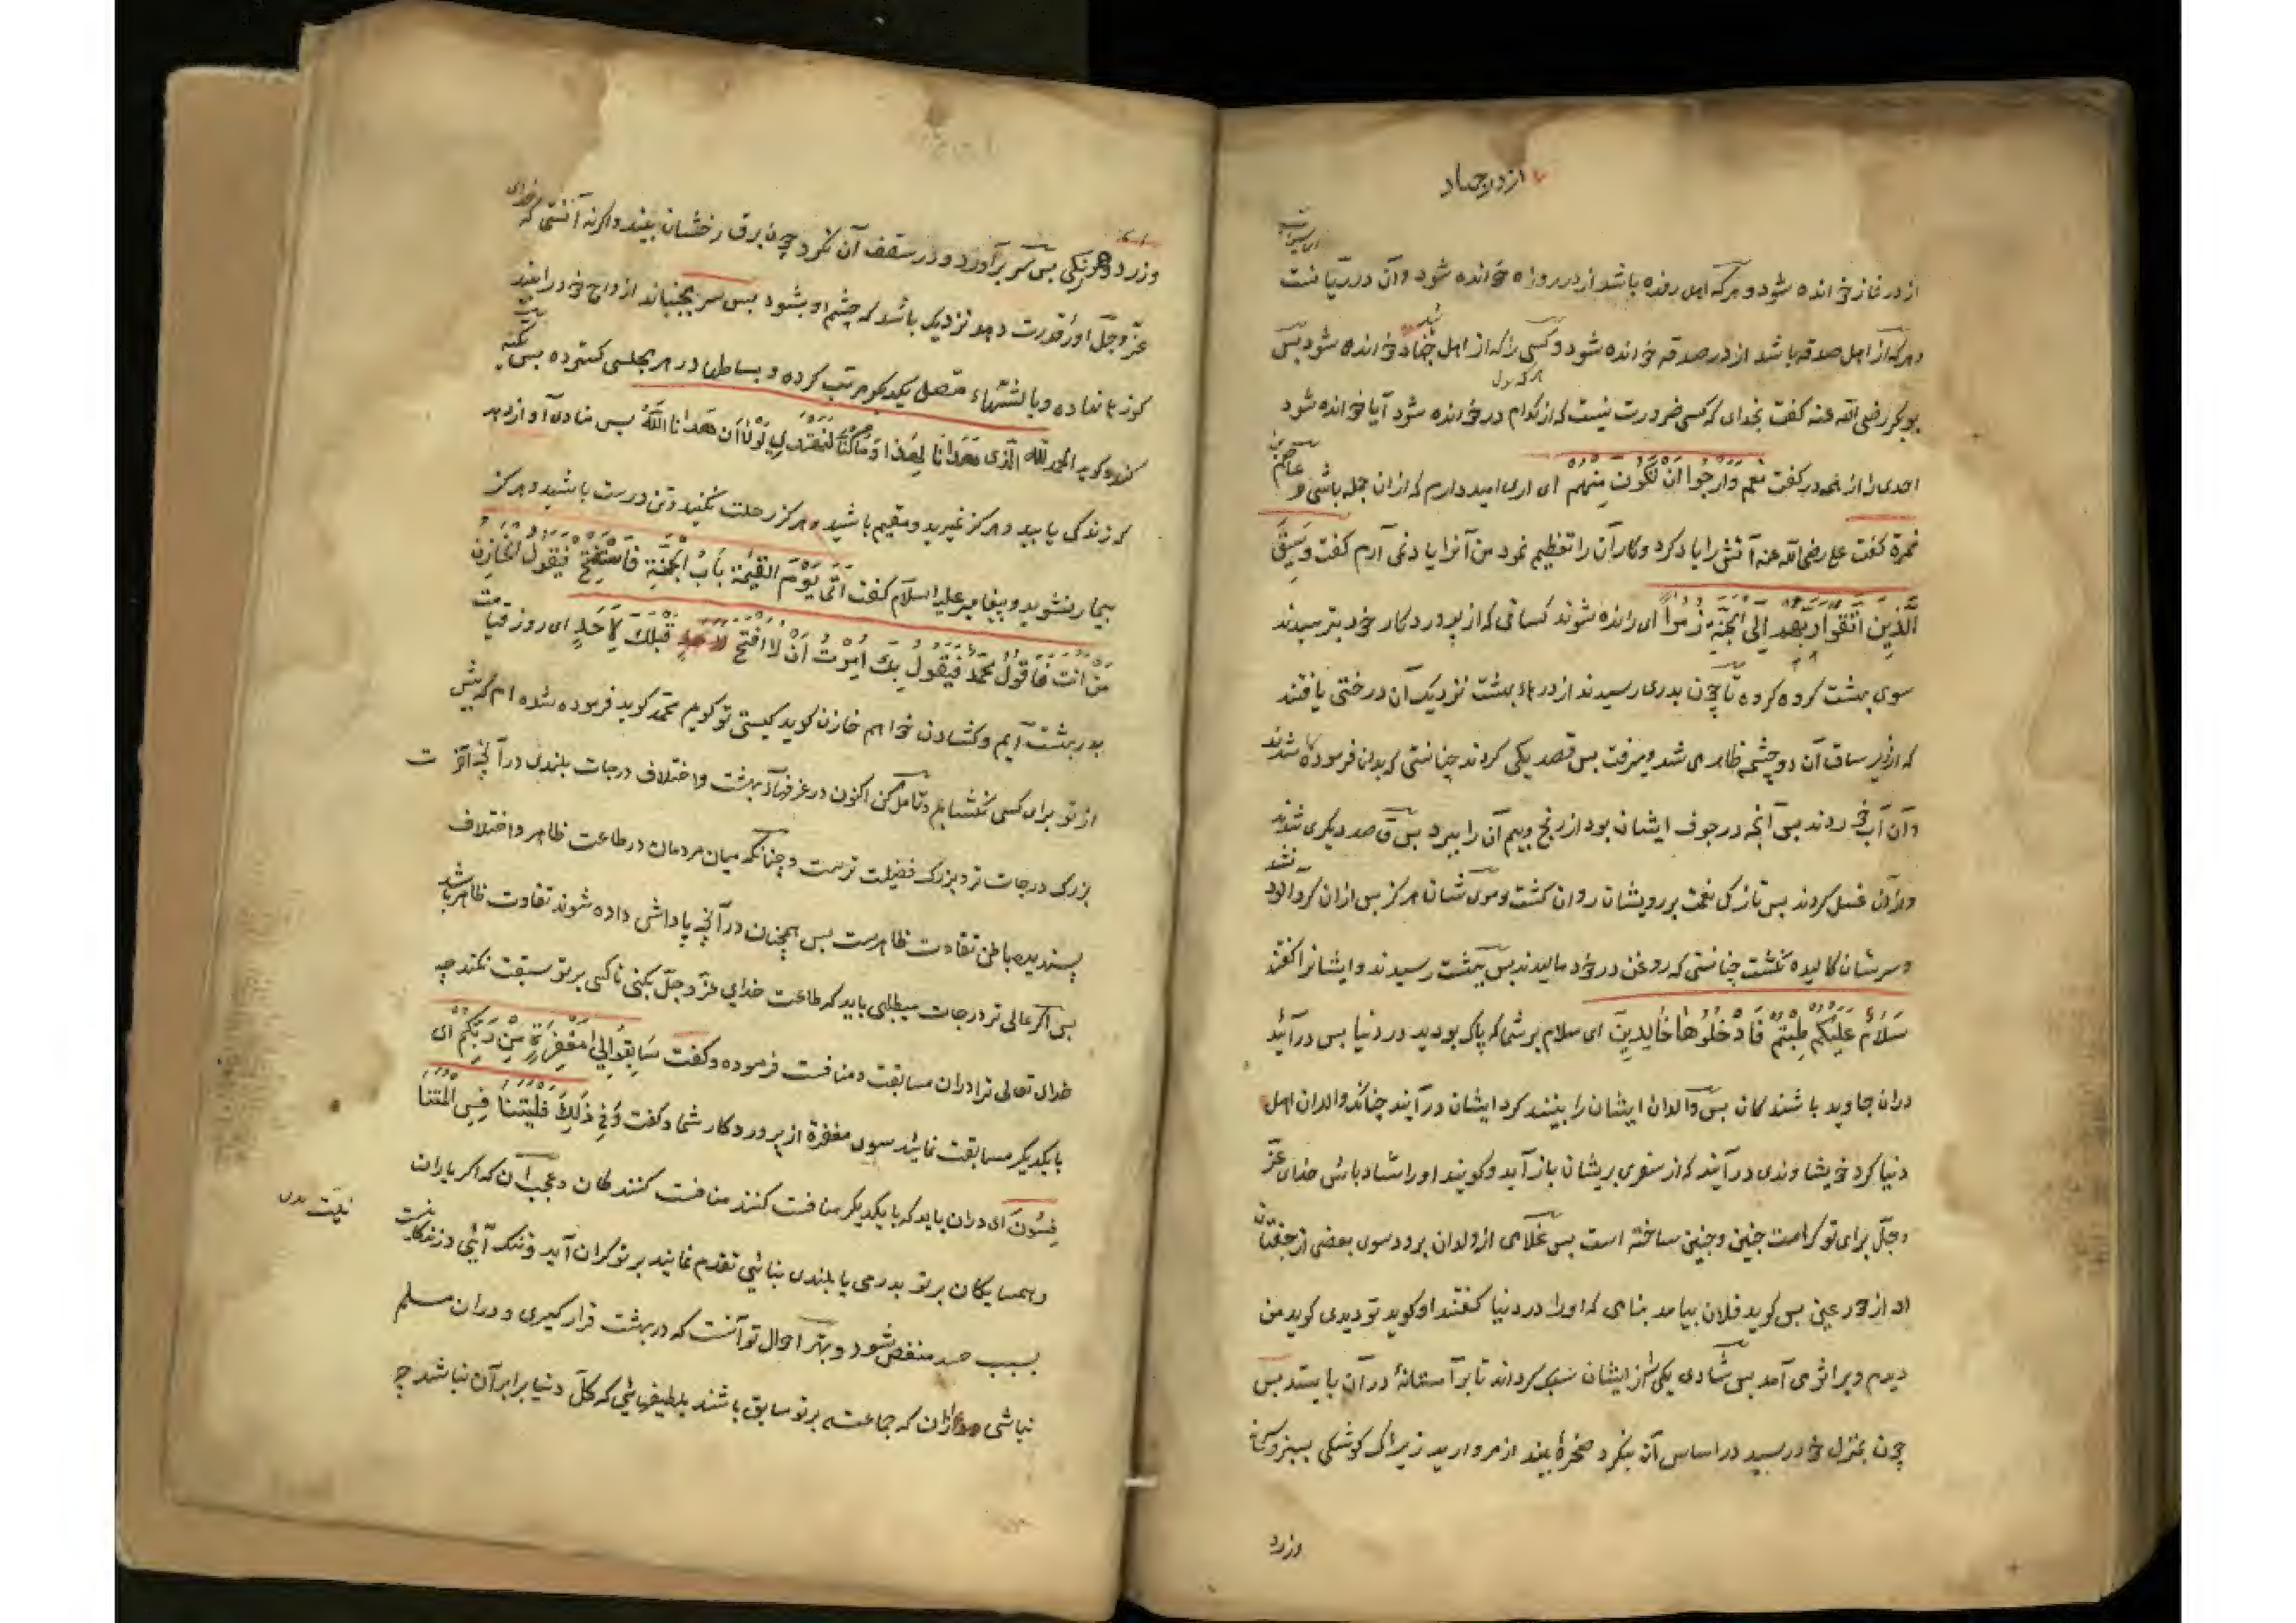 از در جهاد
از در نماز خوانده شود و هر که اهل روزه باشد از در روزه خوانده شود و آن در ریانست
و هر که از اهل صدقه باشد از در صدقه خوانده شود و کسی را که از اهل جهاد خوانده شود بس
بوبکر رضی الله عنه گفت بخدای که کسی ضرورت نیست که از کدام در خوانده شود آیا خوانده شود
احدی را از همه در گفت نعم وارجوا ان تکون منهم ای اری امید دارم که ازان جمله باشی و عاصم بن
ضمرة گفت علی رضی الله عنه آتش را یاد کرد و کار آن را تعظیم نمود من آنرا یاد نمی آرم گفت وَسِیقَ
الَّذِینَ اتَّقَوا رَبَّهُم اِلَی الجَنَّةِ زُمَراً ای رانده شوند کسانی که از پروردکار خود بترسیدند
سوی بهشت کروه کروه تا چون بدری رسیدند از درهاء بهشت نزدیک آن درختی یافتند
که از زیر ساق آن دو چشمه ظاهر می شد و میرفت بس قصد یکی کردند چنانستی که بدان فرموده شدند
و آن آب خوردند بس آنچه در جوف ایشان بود از رنج و بیم آن را ببرد بس قاصد دیکری شدند
و بدان غسل کردند بس تازکی نعمت بر رویشان روان کشت و موی شان هرکز بس ازان کردآلود نشد
و سرشان کالیده نکشت چنانستی که روغن در خود مالیدند بس ببهشت رسیدند و ایشانرا گفتند
سَلَامٌ عَلَیکُم طِبتُم فَادخُلُوهَا خَالِدِینَ ای سلام بر شما که پاک بودید در دنیا بس درآئید
دران جاوید باشندکان بس والدان ایشان را بینند کرد ایشان درآیند چنانکه والدان اهل
دنیا کرد خویشاوندی درآیند که از سفری بریشان باز آید و کویند او را شاد باش خدای عزّ
و جلّ برای تو کرامت چنین و چنین ساخته است بس غلامی از ولدان برود سوی بعضی از جفتان
او از حور عین بس کوید فلان بیامد بنامی که او را در دنیا گفتند او کوید تو دیدی کوید من
دیدم و بر اثر می آمد بس شادی یکی را از ایشان سبک کرداند تا بر آستانهٔ در آن بایستد بس
چون بمنزل خود رسید در اساس آن بنکرد صخرهٔ بیند از مروارید زبر آن کوشکی سبز و سرخ
و زرد
و زرد و هر رنکی بس سر برآورد و در سقف آن نکرد چون برق رخشان بیند و اکر نه آنستی که خدای
عزّ و جلّ او را قدرت دهد نزدیک باشد که چشم او بشود بس سر بجنباند ازواج خود را بیند
کوزها نهاده و بالشتهاء متصل یکدیکر مرتب کرده و بساطها در هر مجلسی کسترده بس تکیه
کند و کوید الحمد لله الذی هَدَانَا لِهَذَا وَمَا کُنَّا لِنَهتَدِیَ لَولَا اَن هَدَانَا اللهُ بس منادی آواز دهد
که زندکی یابید و هرکز نمیرید و مقیم باشید و هرکز رحلت نکنید و تن درست باشید و هرکز
بیمار نشوید و پیغامبر علیه السلام گفت آتی یَومَ القِیمَةِ بَابَ الجَنَّةِ فَاَستَفتِحُ فَیَقُولُ الخَازِنُ
مَن اَنتَ فَاَقُولُ مُحَمَّد فَیَقُولُ بِکَ اُمِرتُ اَن لَا اَفتَحَ قَبلَکَ لِاَحَدٍ ای روز قیامت
بدر بهشت آیم و کشادن خواهم خازن کوید کیستی تو کویم محمّد کوید فرموده شده ام که پیش
از تو برای کسی نکشایم و تامل کن اکنون در غرفهاء بهشت و اختلاف درجات بلندی در آن چه آخرت
بزرک درجات تر و بزرک فضیلت ترست و چنانکه میان مردمان در طاعت ظاهر و اختلاف
پسندیده باطن تفاوت ظاهرست بس همچنان در آنچه پاداش داده شوند تفاوت ظاهر باشد
بس اکر عالی تر درجات میطلبی باید که طاعت خدای عزّ و جلّ بکنی تا کسی بر تو سبقت نکند چه
خدای تعالی ترا دران مسابقت و منافست فرموده و گفت سَابِقُوا اِلَی مَغفِرَةٍ مِن رَبِّکُم ای
با یکدیکر مسابقت نمائید سوی مغفرة از پروردکار شما و گفت وَفِی ذَلِکَ فَلیَتَنَافَسِ المُتَنَا
فِسُونَ ای دران باید که با یکدیکر منافست کنند منافست کنندکان و عجب آن که اکر یاران
و همسایکان بر تو بدرمی یا بلندی بنائی تقدم نمایند بر تو کران آید و تنک آئی و زندکانیت
بسبب حسد منغص شود و بهتر احوال تو آنست که در بهشت قرار کیری و دران مسلم
نباشی ازان که جماعتی بر تو سابق باشند بلطیفهائی که کلّ دنیا برابر آن نباشد چه